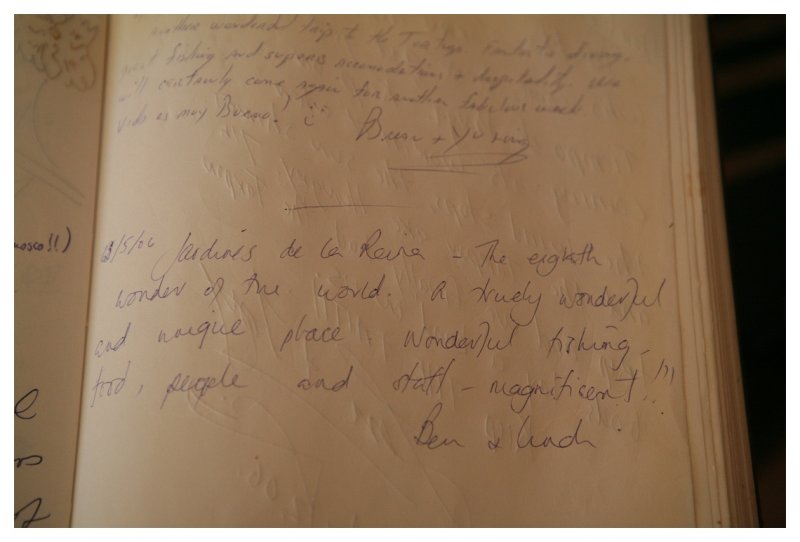 another wonderful trip to the Tortuga. Fantastic diving,
great fishing and superb accomodation + hospitality. We
will certainly come again for another fabulous week
Vida es muy Buena!
Brian +
/5/06 Jardines de la Reina – The eighth
wonder of the world. A truely wonderful
and unique place. Wonderful fishing –
food, people and staff – magnificent!!!
Ben &